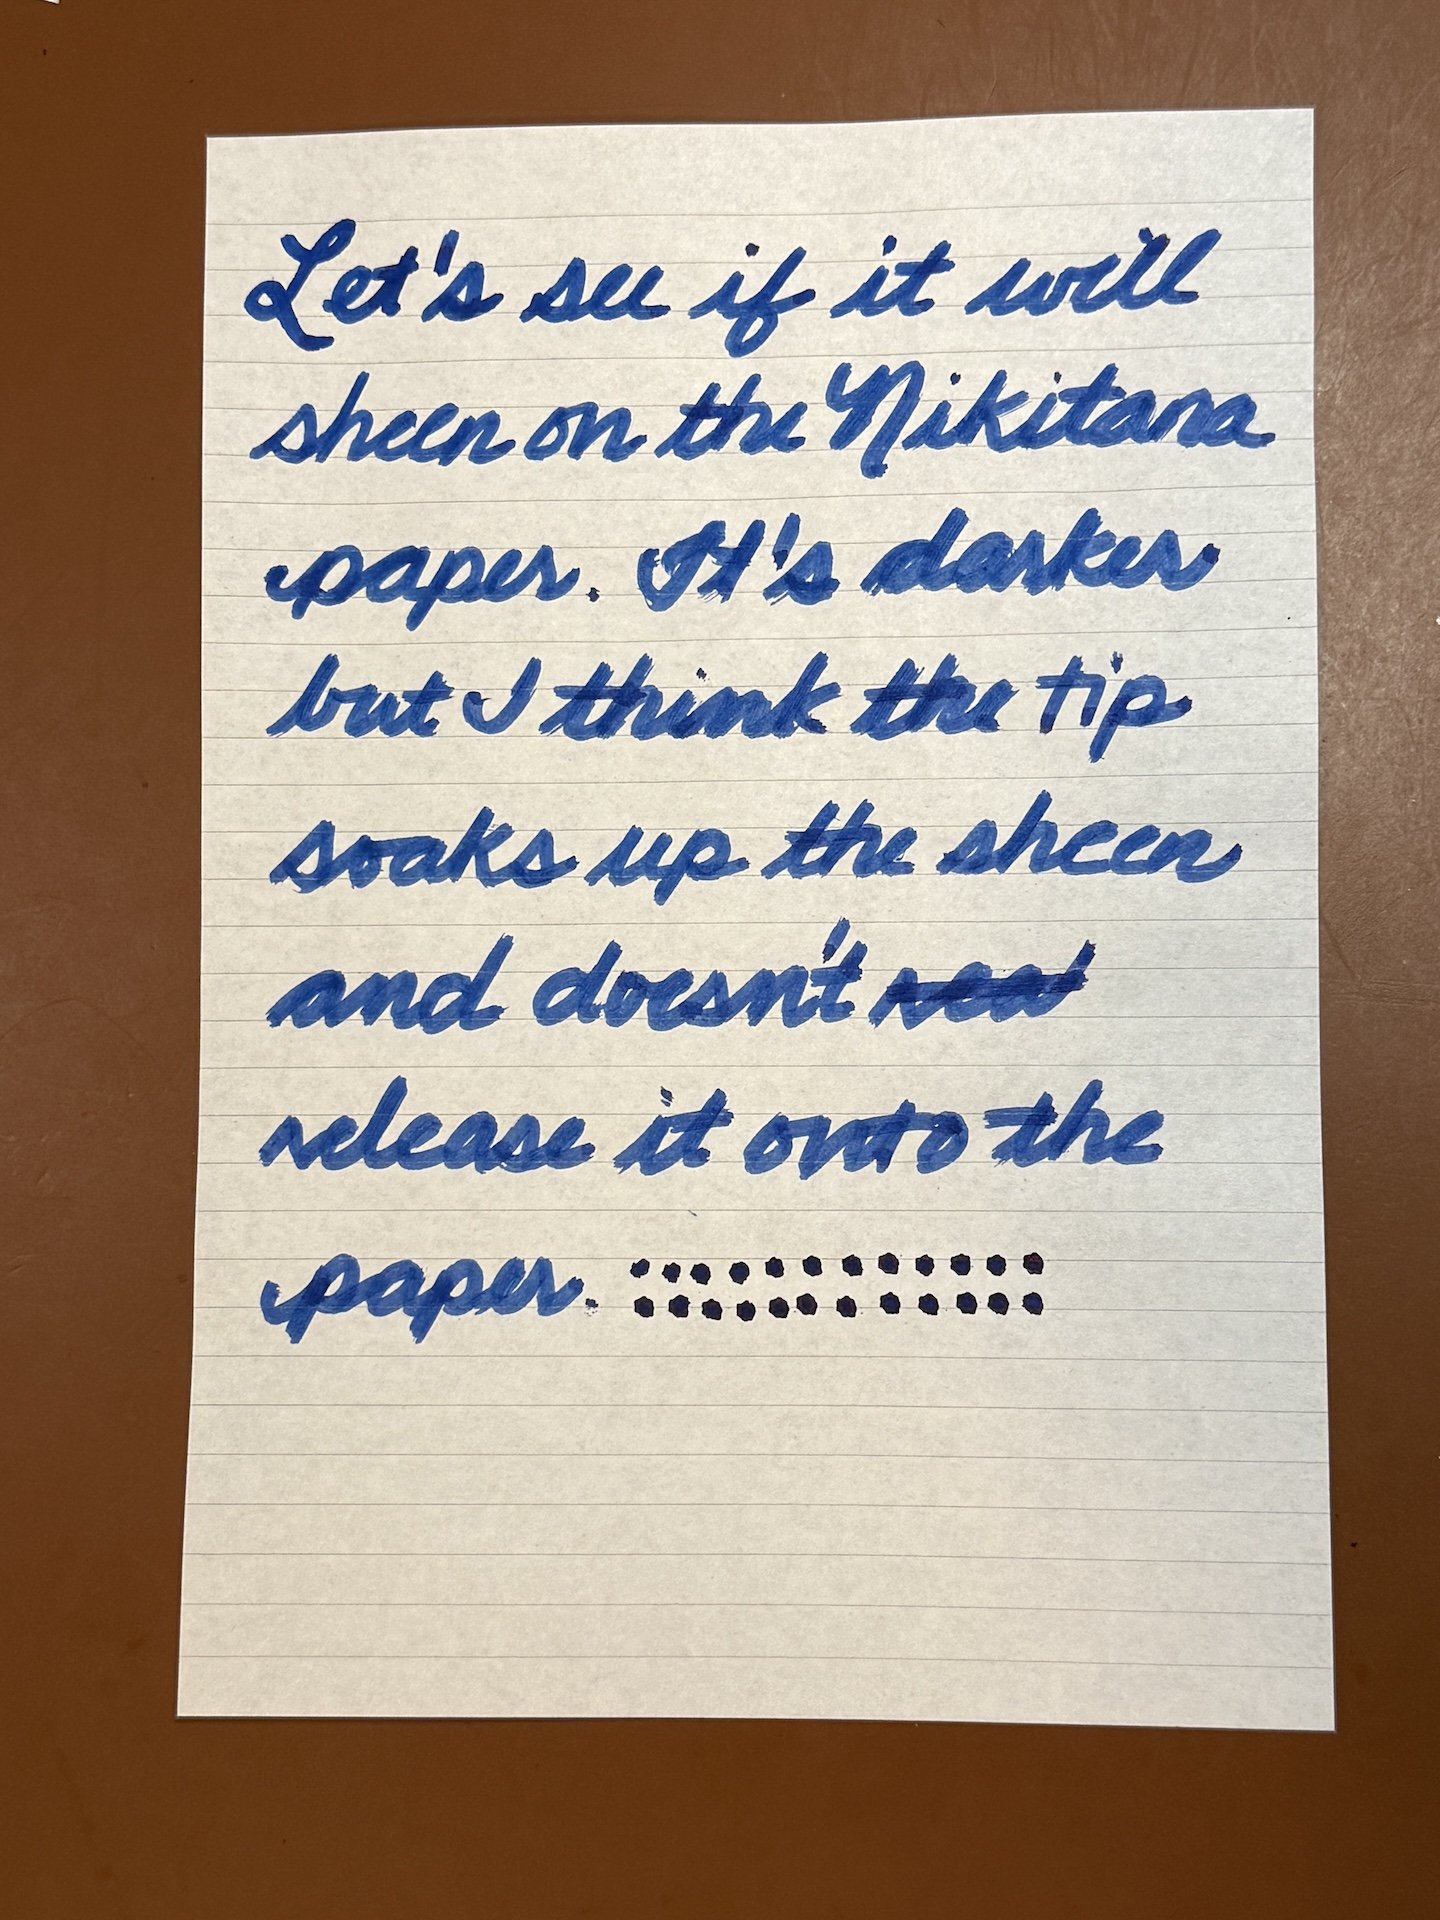 Let's see if it will
sheen on the Nikitana
paper. It's darker
but I think the tip
soaks up the sheen
and doesn't
release it onto the
paper.